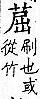 䓛
刷也或
從竹